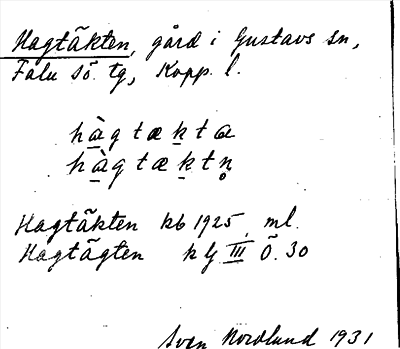 Hagtäkten, gård i Gustavs sn,
Falu sö. tg, Kopp. l.
hàgtækta
hàgtæktn̥
Hagtäkten kb 1925, ml.
Hagtägten klj III Ö. 30
Sven Nordlund 1931